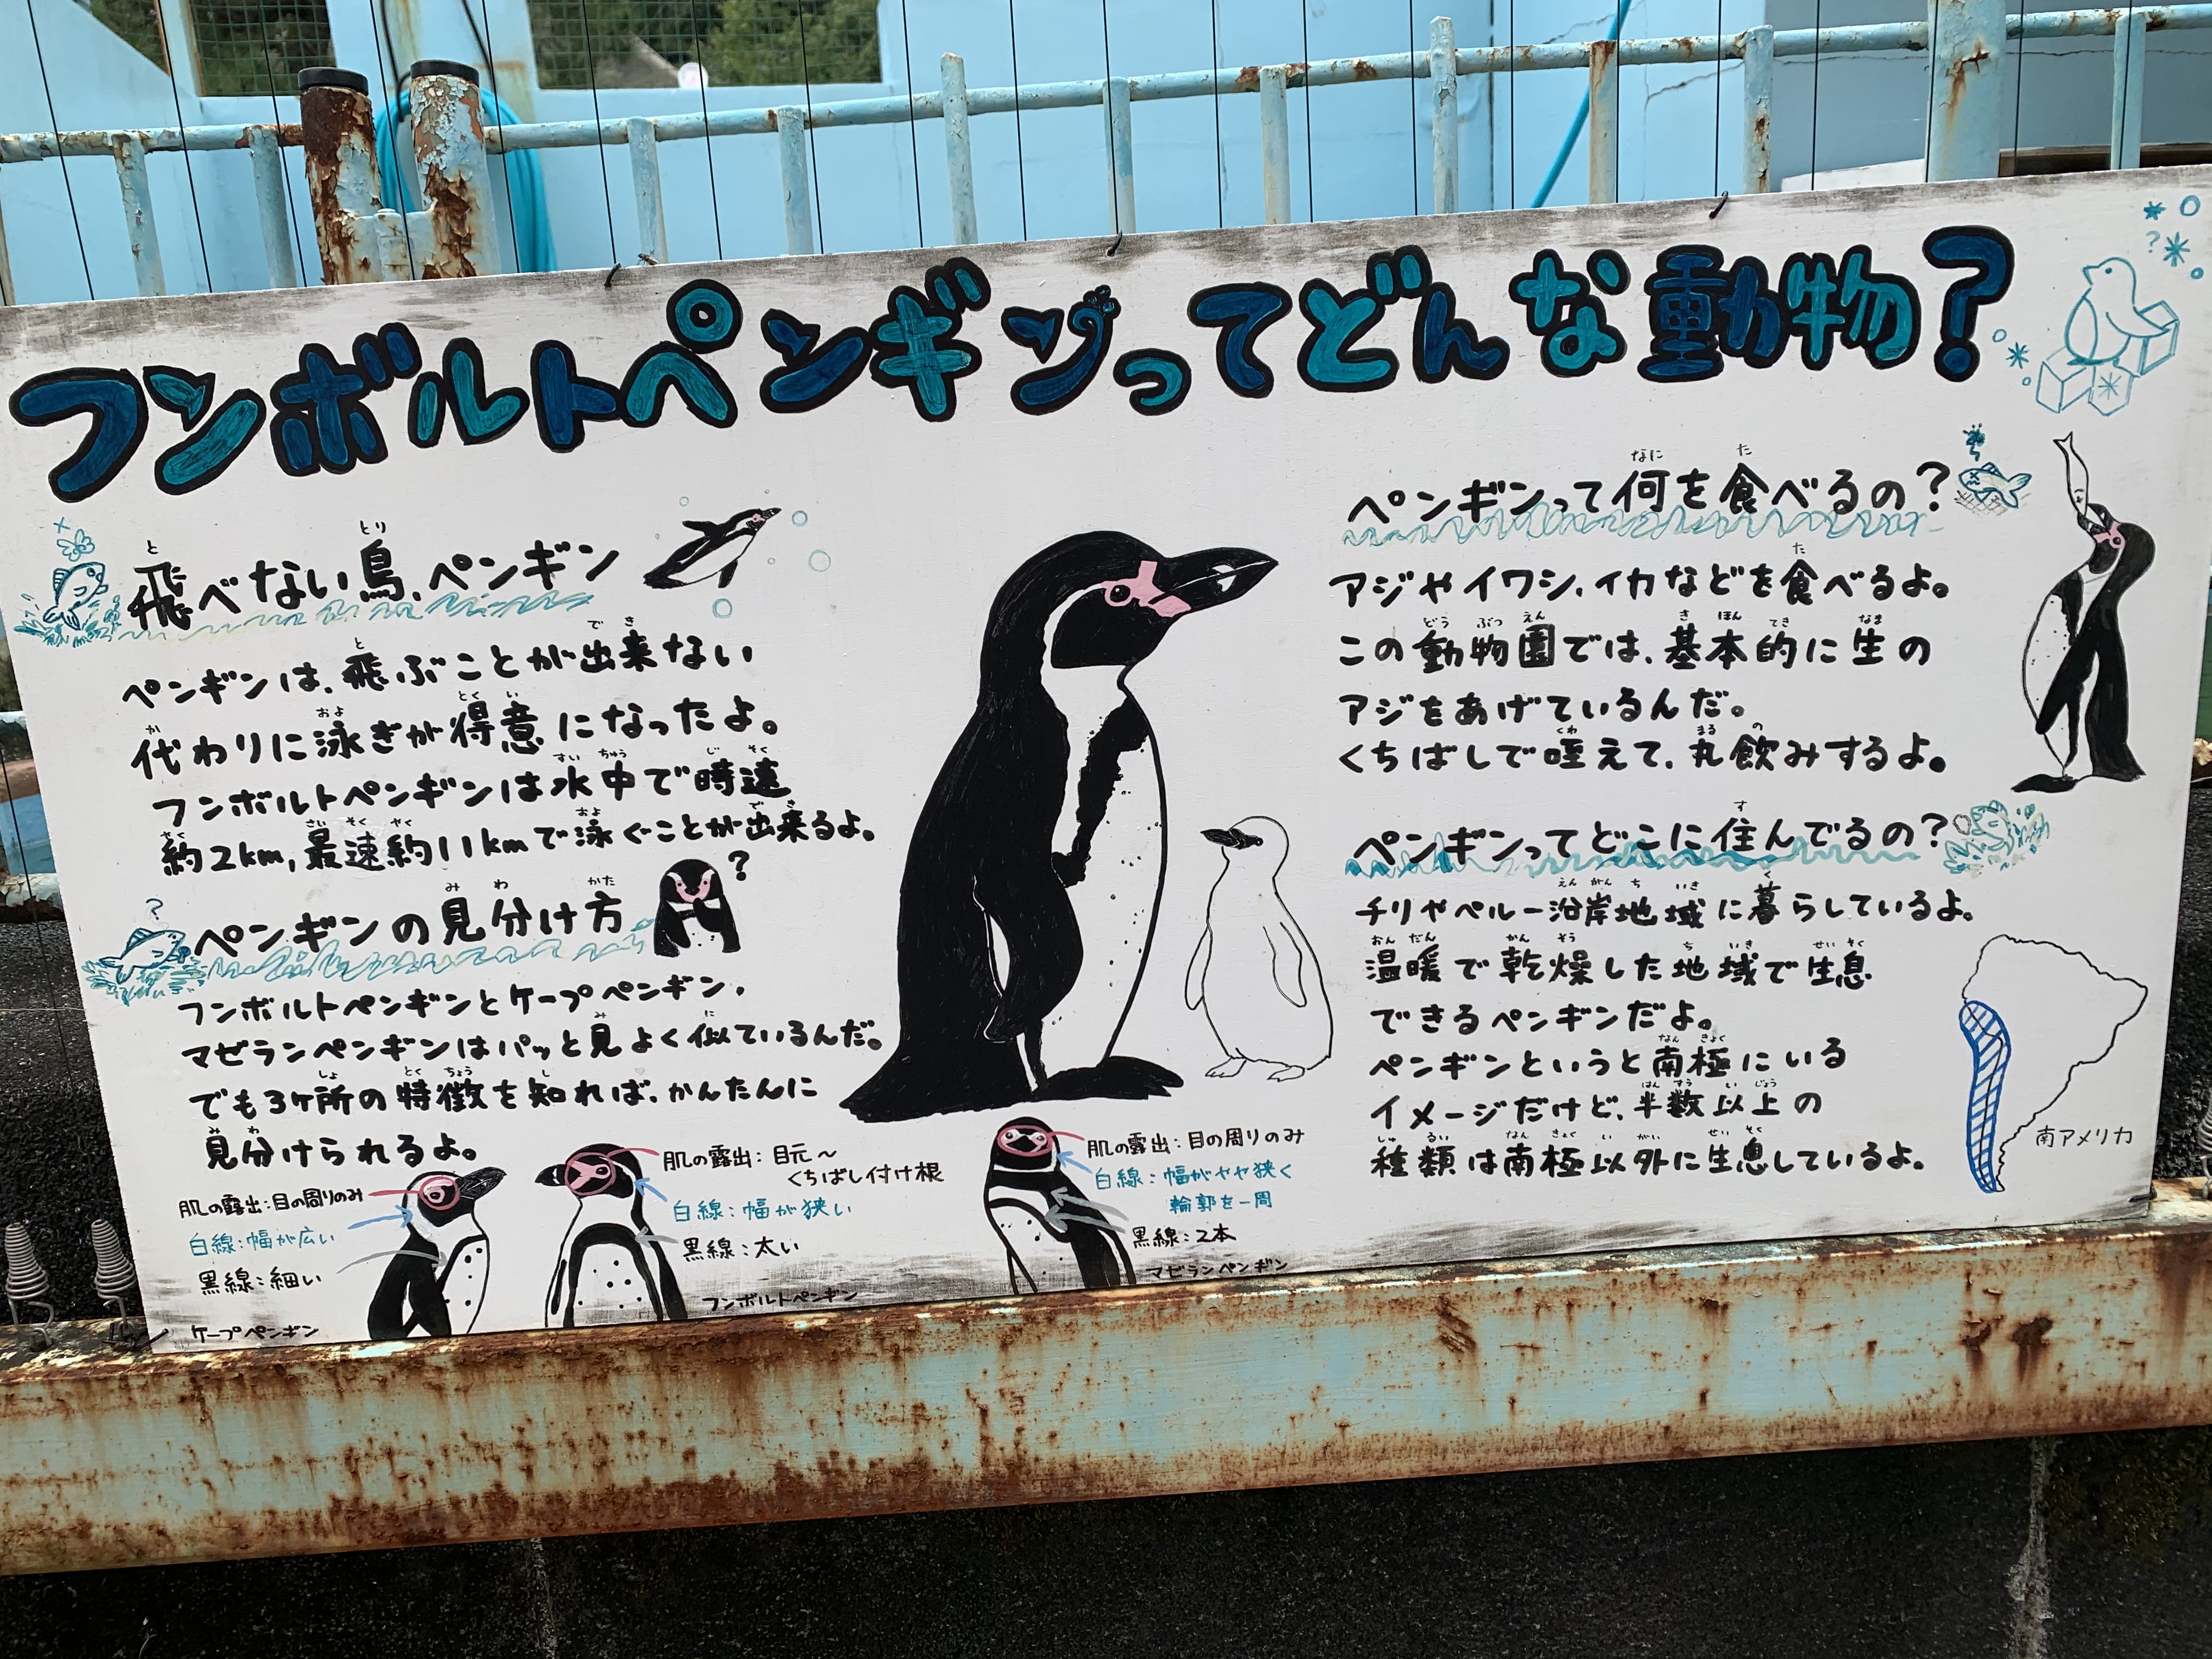 フンボルトペンギンってどんな動物?
飛べない鳥、ペンギン
ペンギンは、飛ぶことが出来ない
代わりに泳ぎが得意になったよ。
フンボルトペンギンは水中で時速
約2km,最速約11kmで泳ぐことが出来るよ。
ペンギンの見分け方
フンボルトペンギンとケープペンギン、
マゼランペンギンはパッと見よく似ているんだ。
でも3ヶ所の特徴を知れば、かんたんに
見分けられるよ。
肌の露出:目の周りのみ
白線:幅が広い
黒線:細い
ケープペンギン
肌の露出:目元〜
くちばし付け根
白線:幅が狭い
黒線:太い
フンボルトペンギン
肌の露出:目の周りのみ
白線:幅がやや狭く
輪郭を一周
黒線:2本
マゼランペンギン
ペンギンって何を食べるの?
アジやイワシ、イカなどを食べるよ。
この動物園では、基本的に生の
アジをあげているんだ。
くちばしで咥えて、丸飲みするよ。
ペンギンってどこに住んでるの?
チリやペルー沿岸地域に暮らしているよ。
温暖で乾燥した地域で生息
できるペンギンだよ。
ペンギンというと南極にいる
イメージだけど、半数以上の
種類は南極以外に生息しているよ。
南アメリカ